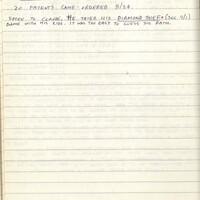 20 PATENTS CAME - ORDERED 8/24.
SPOKE TO CLAUDE. HE TRIED HIS DIAMOND THIEF (SEE 9/1)
GAME WITH HIS KIDS. IT WAS TOO EASY TO GUESS THE PATH.